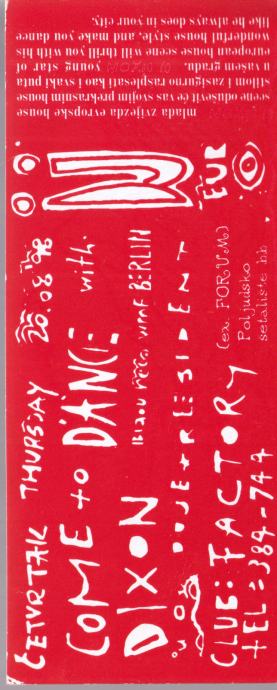 ČETVRTAK THURSDAY 20.08'98
COME to DANCE with
DIXON wmf BERLIN
RESIDENT
CLUB: FACTORY (ex. FORUM)
TEL: 384-744 Poljudsko
setaliste bb
mlada zvijezda evropske house
scene oduševit će vas svojim prekrasnim house
stilom i zasigurno rasplesati kao i svaki puta
u vašem gradu. DJ DIXON young star of
european house scene will thrill you with his
wonderful house style, and make you dance
like he always does in your city.